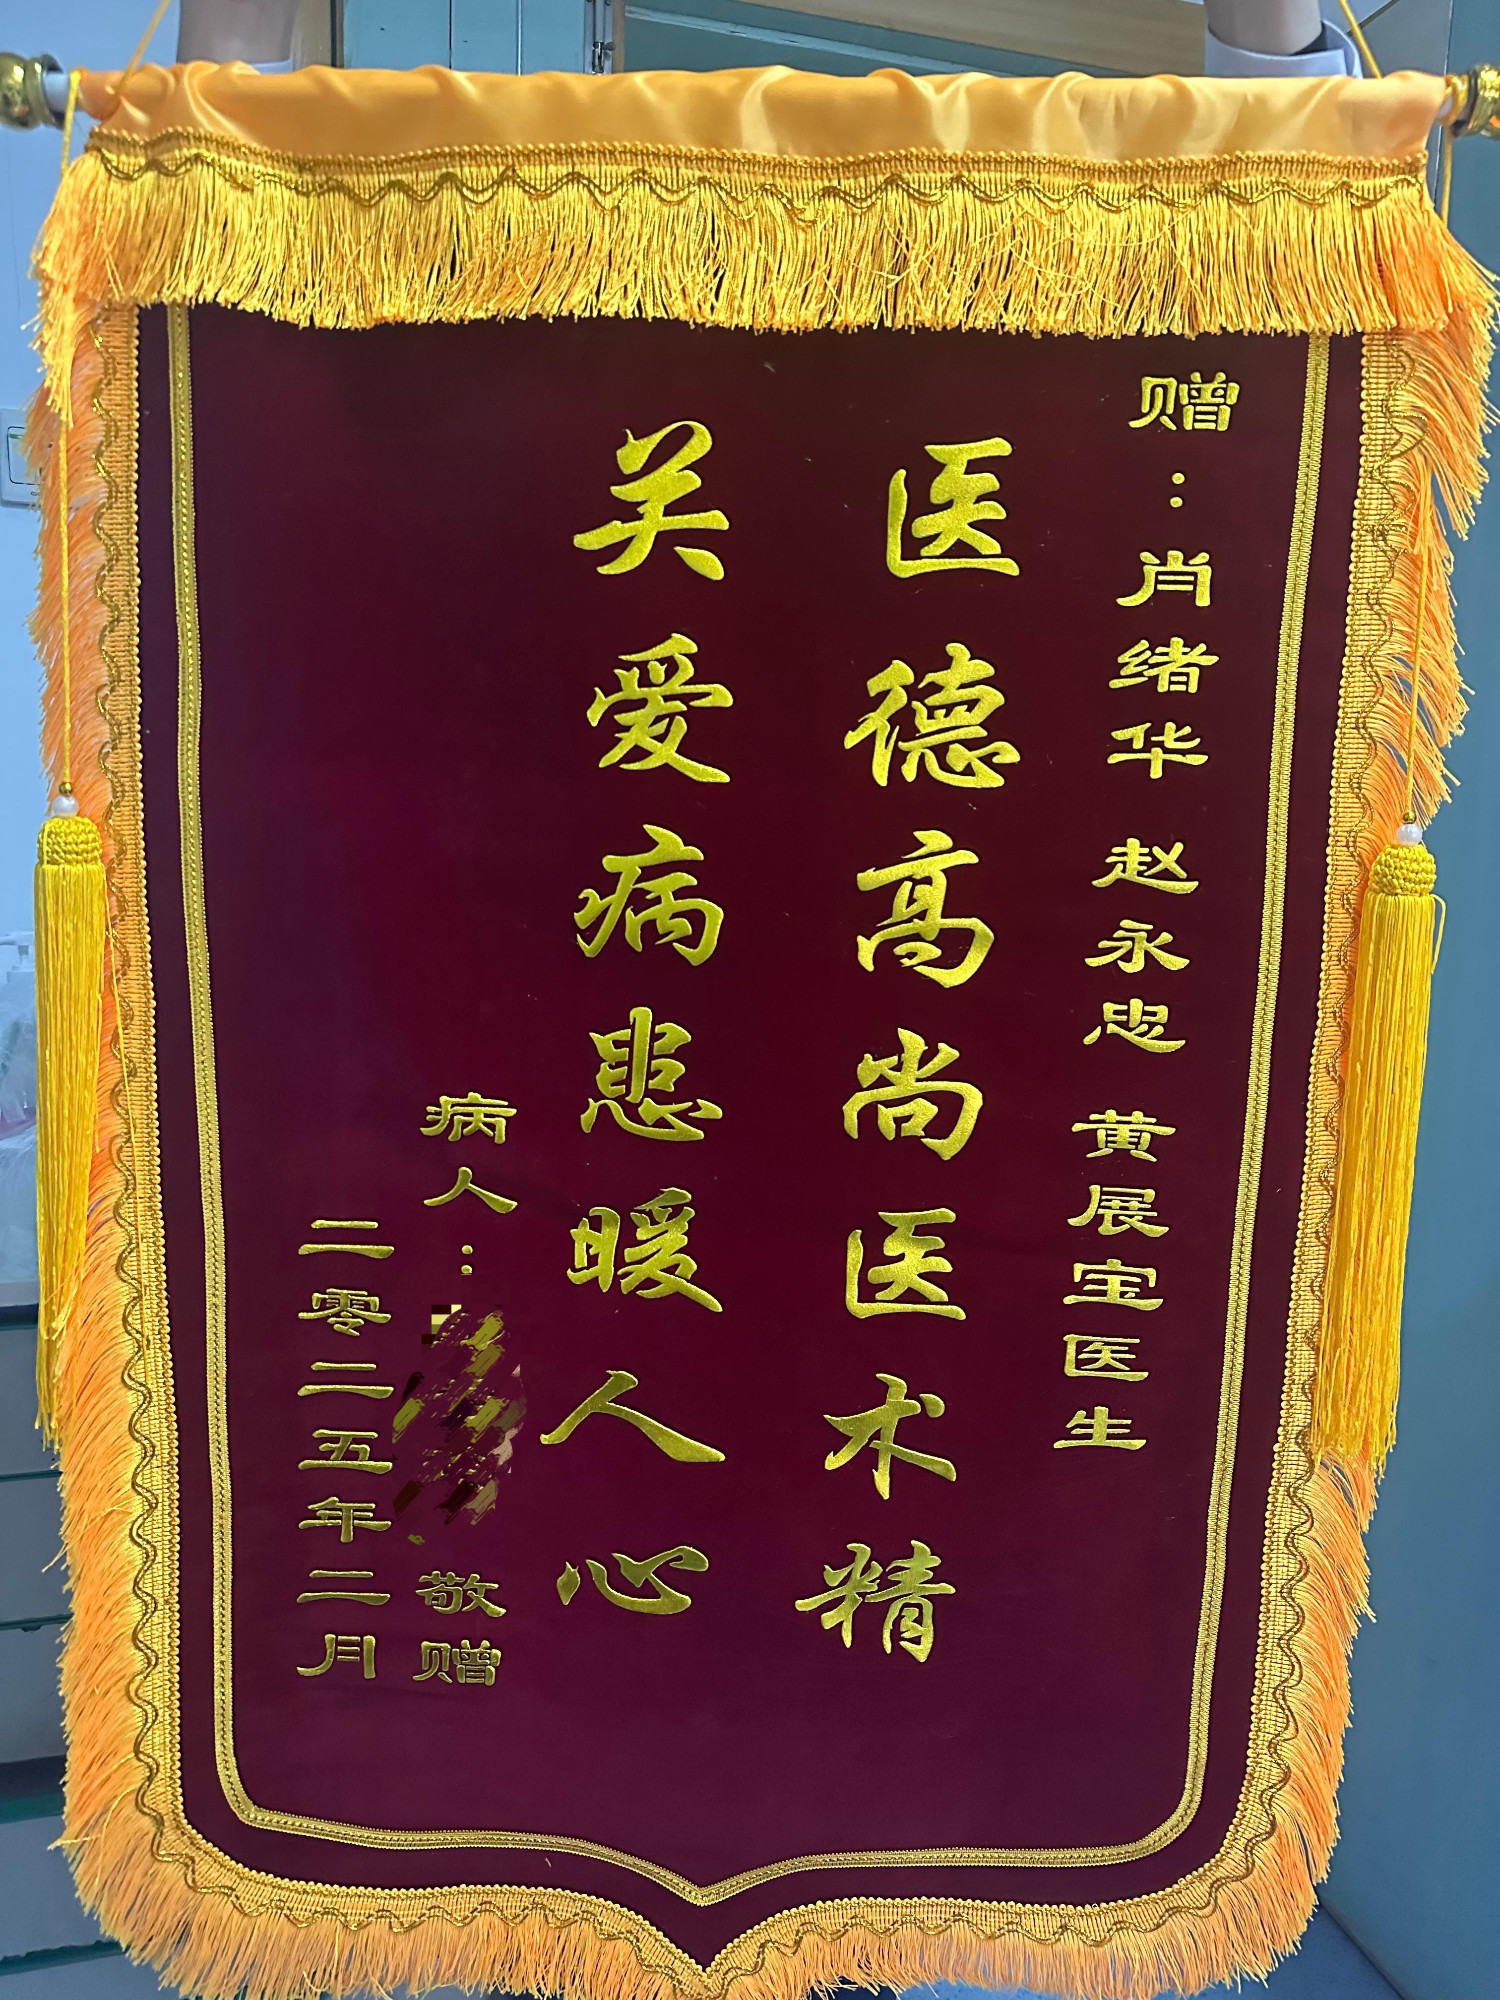 赠：肖绪华 赵永忠 黄展宝医生
医德高尚医术精
关爱病患暖人心
病人： 敬赠
二零二五年二月